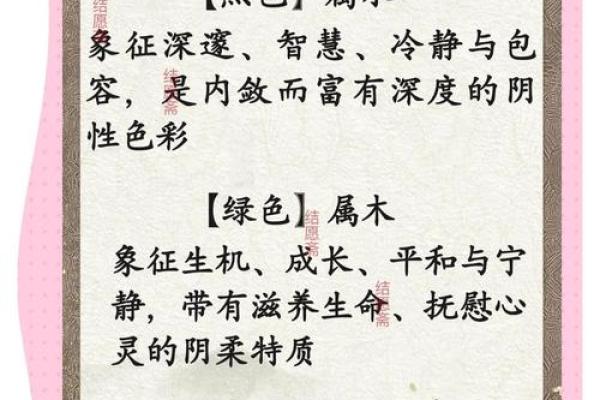 【黑色】属水
象征深邃、智慧、冷静与包
容，是内敛而富有深度的阴
性色彩
【绿色】属木
象征生机、成长、平和与宁
静，带有滋养生命、抚慰心
灵的阴柔特质
结愿斋
结愿斋
结愿斋
结愿斋